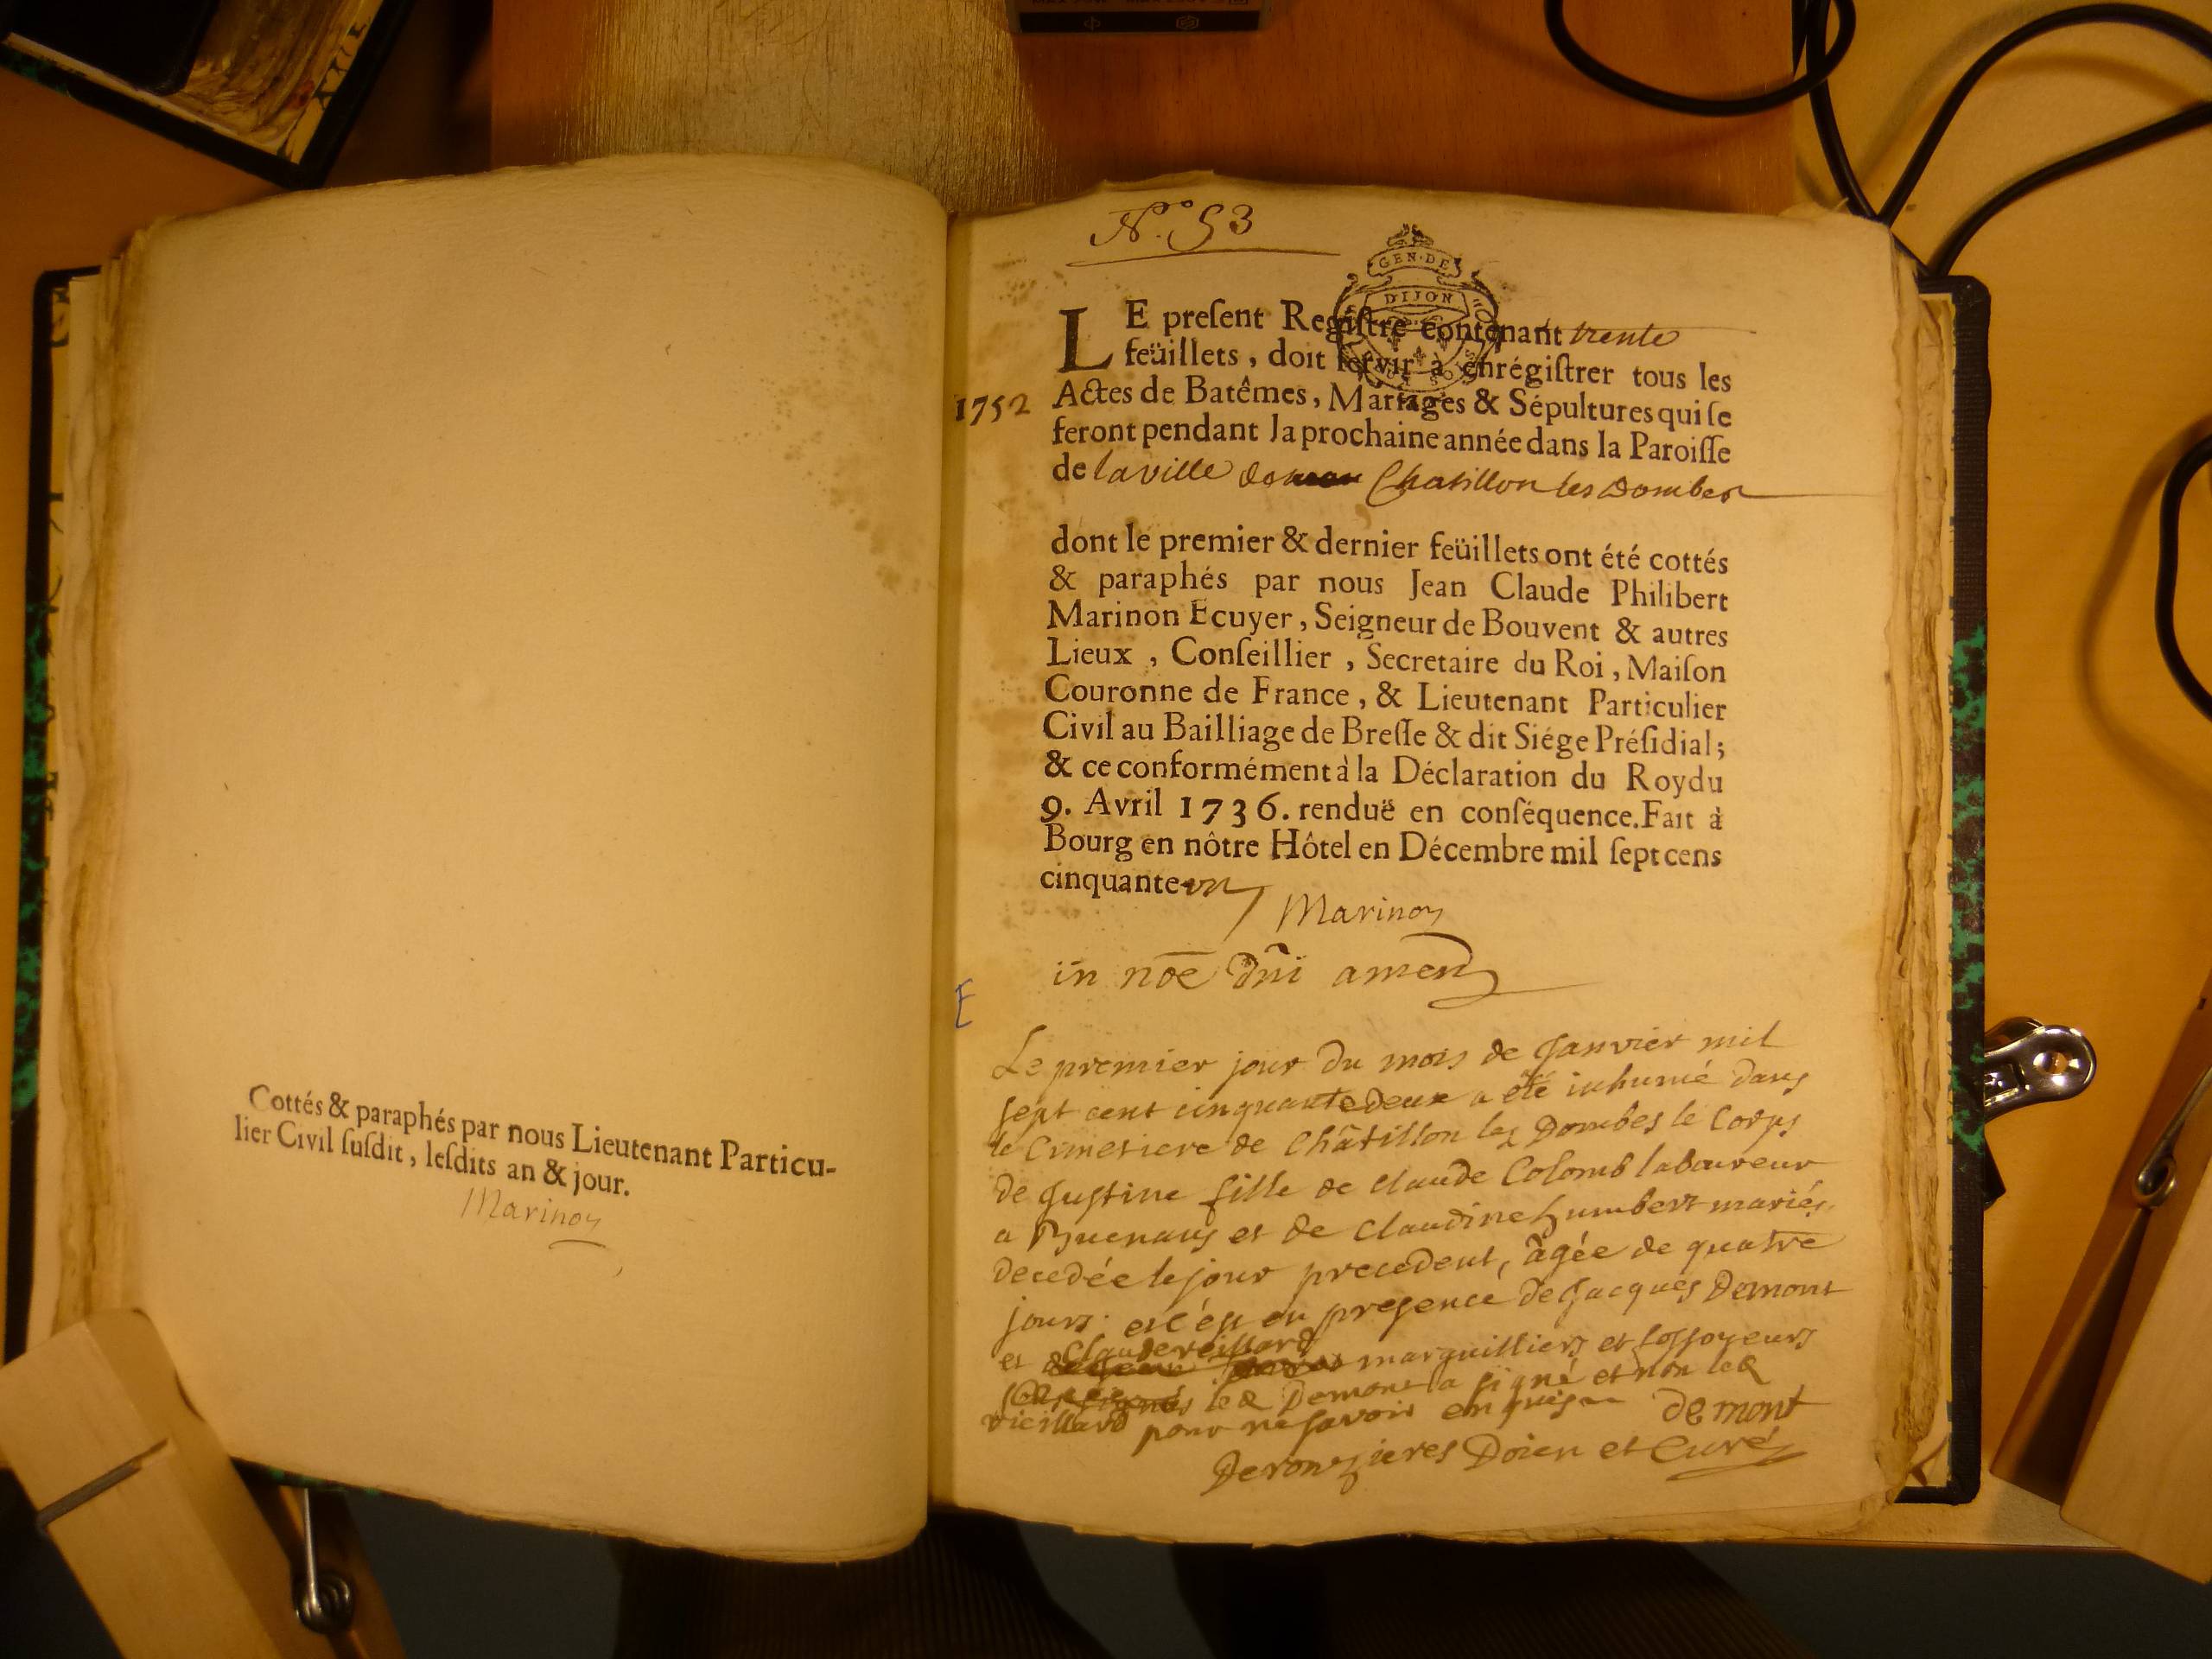 Cottés & paraphés par nous Lieutenant Particu-
lier Civil ſuſdit, leſdits an & jour.
Marinon
N.º 53
GEN·DE
DIJON
LE preſent Regiſtre contenant trente
feüillets, doit ſervir à enrégiſtrer tous les
1752
Actes de Batêmes, Mariages & Sépultures qui ſe
feront pendant la prochaine année dans la Paroiſſe
de la ville de Chatillon les Dombes
dont le premier & dernier feüillets ont été cottés
& paraphés par nous Jean Claude Philibert
Marinon Ecuyer, Seigneur de Bouvent & autres
Lieux, Conſeillier, Secretaire du Roi, Maiſon
Couronne de France, & Lieutenant Particulier
Civil au Bailliage de Breſſe & dit Siége Préſidial;
& ce conformément à la Déclaration du Roy du
9. Avril 1736. renduë en conſéquence. Fait à
Bourg en nôtre Hôtel en Décembre mil ſept cens
cinquante un
Marinon
in nōe dñi amen
E
Le premier jour du mois de Janvier mil
sept cent cinquante deux a été inhumé dans
le Cimetiere de Châtillon les Dombes le Corps
de Justine fille de Claude Colomb laboureur
a Buenans et de Claudine humbert mariés
decedée le jour precedent, âgée de quatre
jours. et c'est en presence de Jacques Demont
et Claude veillard marguilliers et fossoyeurs
led Demont a signé et non led
vieillard pour ne savoir enquis
demont
Deronzieres Doien et Curé